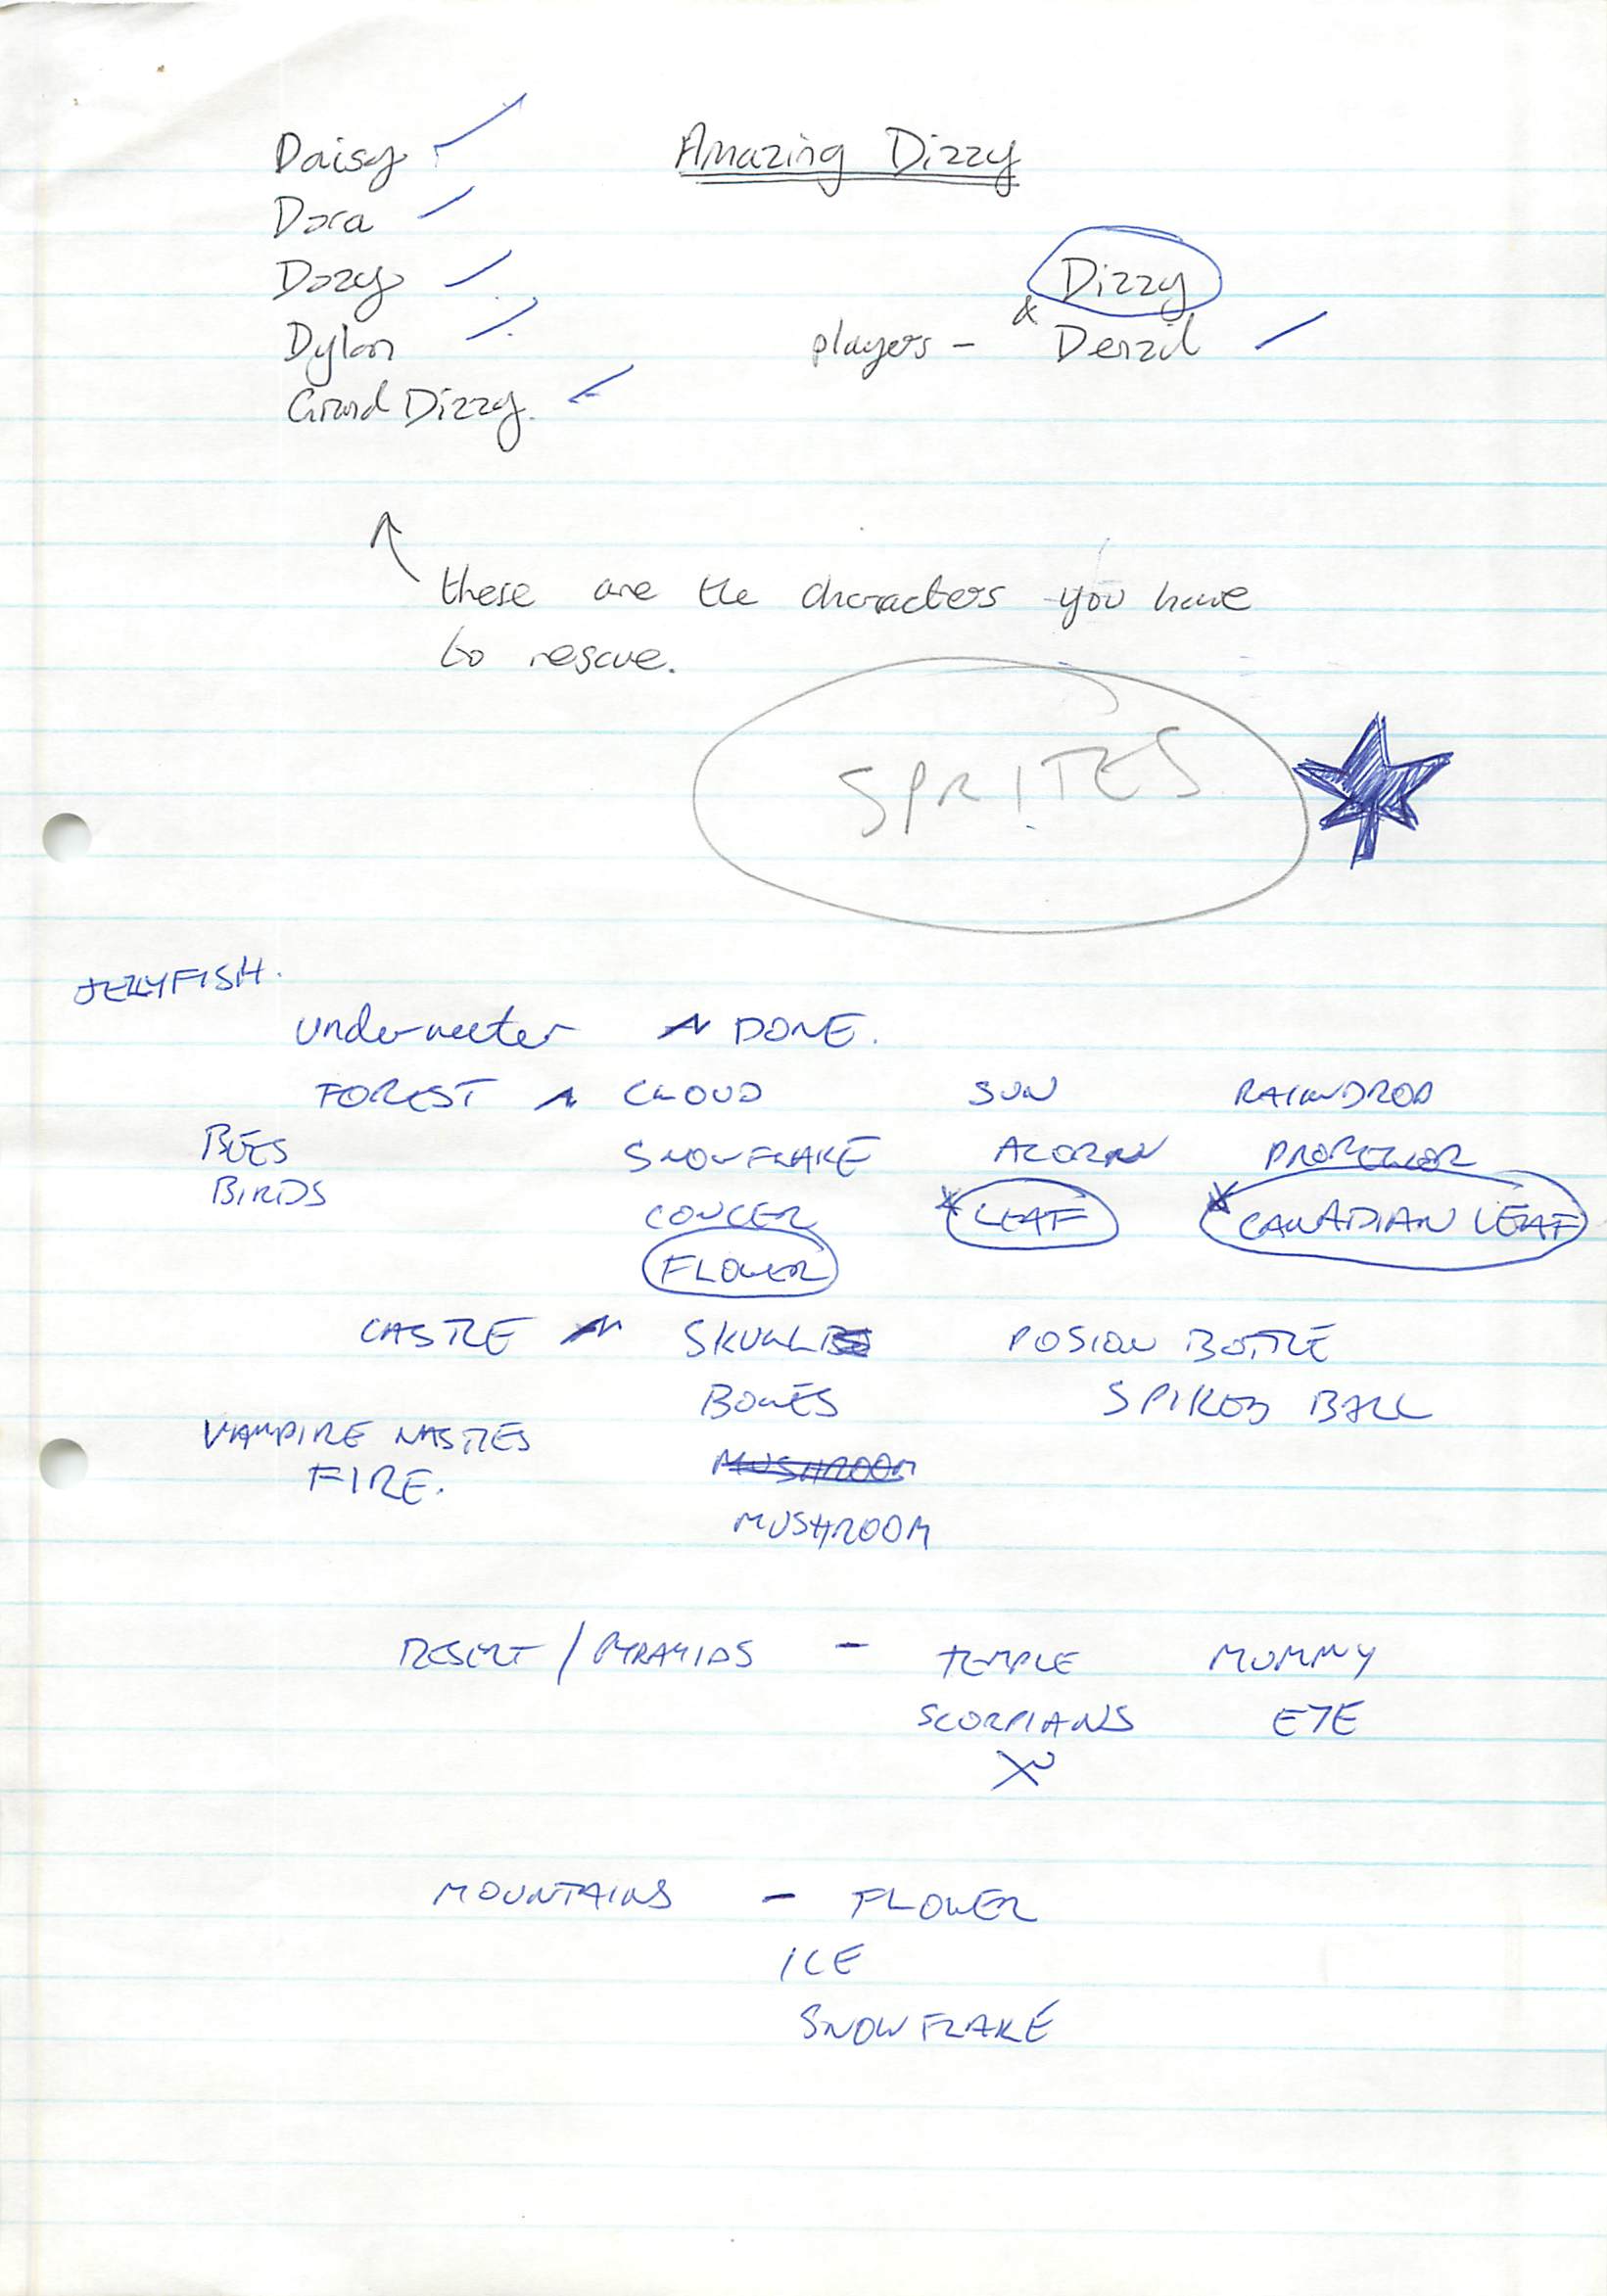 Daisy Amazing Dizzy
Dora
Dozy Dizzy
Dylan players - & Denzil
Grand Dizzy.
these are the characters you have
to rescue.
SPRITES
JELLYFISH.
Underwater - DONE.
FOREST - CLOUD SUN RAINDROP
BEES SNOWFLAKE ACORN PROPELLOR
BIRDS
CONCER LEAF CANADIAN LEAF
FLOWER
CASTLE - SKULL POSION BOTTLE
BONES SPIKED BALL
VAMPIRE NASTIES
FIRE. MUSHROOM
MUSHROOM
DESERT / PYRAMIDS - TEMPLE MUMMY
SCORPIANS EYE
MOUNTAINS - FLOWER
ICE
SNOWFLAKE